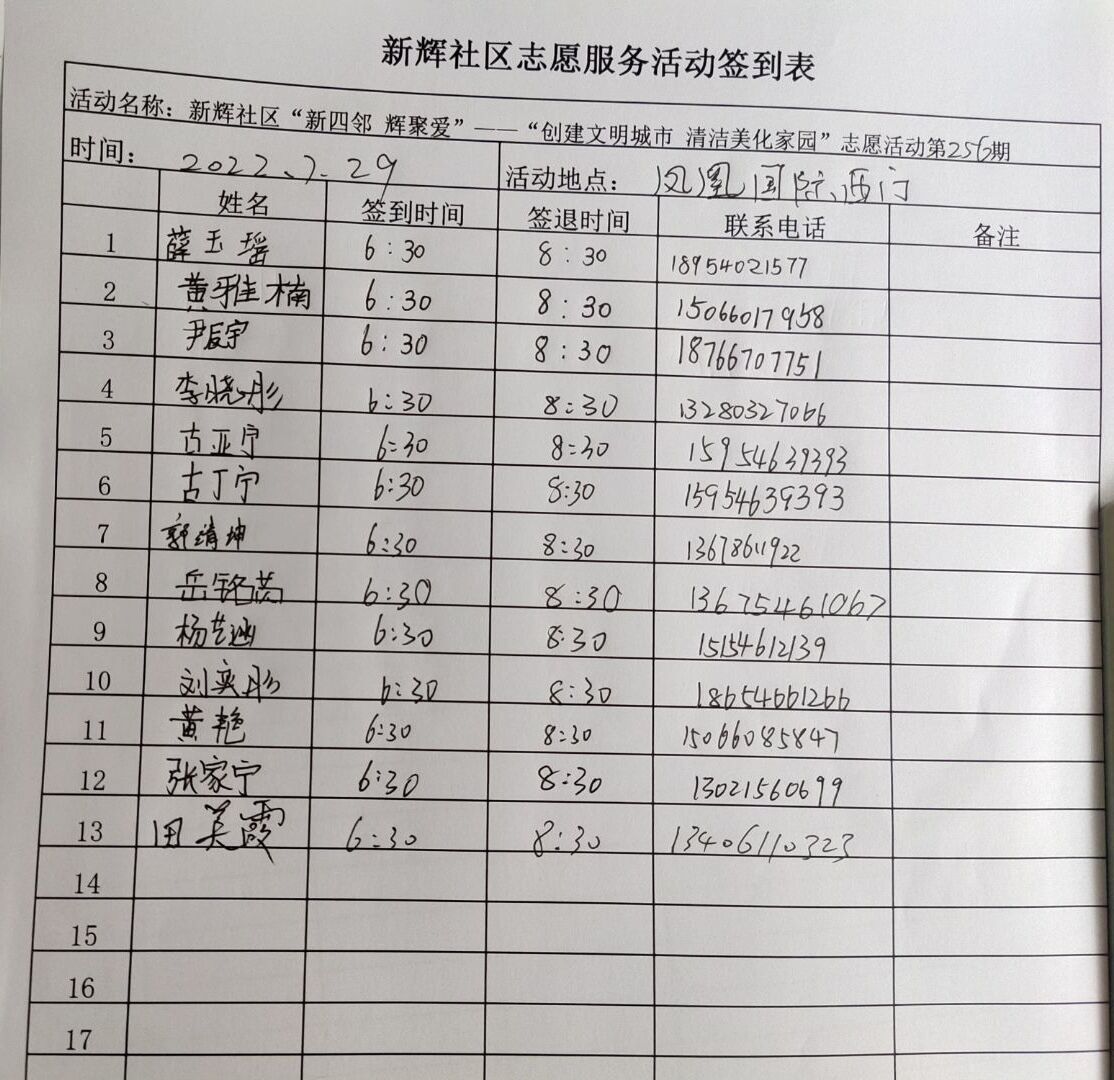 新辉社区志愿服务活动签到表
活动名称：新辉社区“新四邻 辉聚爱”——“创建文明城市 清洁美化家园”志愿活动第256期
时间： 2022.7.29 活动地点： 凤凰国际西门
姓名 签到时间 签退时间 联系电话 备注
1 薛玉瑶 6:30 8:30 18954021577
2 黄雅楠 6:30 8:30 15066017958
3 尹辰宇 6:30 8:30 18766707751
4 李晓彤 6:30 8:30 13280327066
5 古亚宁 6:30 8:30 15954639393
6 古丁宁 6:30 8:30 15954639393
7 郭靖坤 6:30 8:30 13678611922
8 岳铭 6:30 8:30 13675461067
9 杨艺涵 6:30 8:30 15154612139
10 刘奕彤 6:30 8:30 18654661266
11 黄艳 6:30 8:30 15066085847
12 张家宁 6:30 8:30 13021560699
13 田美霞 6:30 8:30 13406110323
14
15
16
17